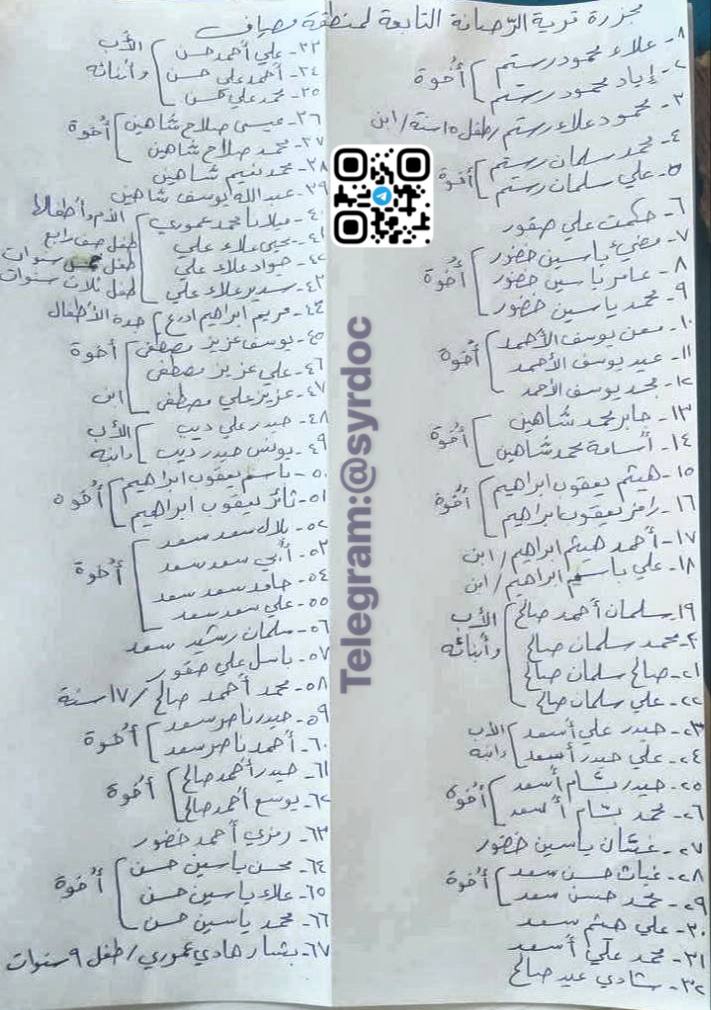 مجزرة قرية الرّصافة التابعة لمنطقة مصياف
١- علاء محمود رستم
٢- إياد محمود رستم
أُخوة
٣- محمود علاء رستم / طفل ١٥ سنة / ابن
٤- محمد سلمان رستم
٥- علي سلمان رستم
أخوة
٦- حكمت علي صقور
٧- مضيء ياسين خضور
٨- عامر ياسين خضور
٩- محمد ياسين خضور
أُخوة
١٠- معن يوسف الأحمد
١١- عبد يوسف الأحمد
١٢- محمد يوسف الأحمد
أُخوة
١٣- جابر محمد شاهين
١٤- أسامة محمد شاهين
أُخوة
١٥- هيثم يعقوب ابراهيم
١٦- رامز يعقوب ابراهيم
أُخوة
١٧- أحمد هيثم ابراهيم / ابن
١٨- علي باسم ابراهيم / ابن
١٩- سلمان أحمد صالح
٢٠- محمد سلمان صالح
٢١- صالح سلمان صالح
٢٢- علي سلمان صالح
الأب
وأبنائه
٢٣- حيدر علي أسعد
٢٤- علي حيدر أسعد
الأب
وابنه
٢٥- حيدر بسام أسعد
٢٦- محمد بسام أسعد
أُخوة
٢٧- غسّان ياسين خضور
٢٨- غياث حسن سعد
٢٩- محمد حسن سعد
أُخوة
٣٠- علي هيثم سعد
٣١- محمد علي أسعد
٣٢- شادي عيد صالح
٣٣- علي أحمد حسن
٣٤- أحمد علي حسن
٣٥- محمد علي حسن
الأب
وأبنائه
٣٦- عيسى صلاح شاهين
٣٧- محمد صلاح شاهين
أُخوة
٣٨- محمد نعيم شاهين
٣٩- عبدالله يوسف شاهين
٤٠- ميلانا محمد عموري
الأم وأطفالها
٤١- يحيى علاء علي
طفل صف رابع
٤٢- جواد علاء علي
طفل خمس سنوات
٤٣- سدير علاء علي
طفل ثلاث سنوات
٤٤- مريم ابراهيم ادرع
جدة الأطفال
٤٥- يوسف عزيز مصطفى
٤٦- علي عزيز مصطفى
أخوة
٤٧- عزيز علي مصطفى
ابن
٤٨- حيدر علي ديب
٤٩- يونس حيدر ديب
الأب
وابنه
٥٠- باسم يعقوب ابراهيم
٥١- ثائر يعقوب ابراهيم
أُخوة
٥٢- بلال سعد سعد
٥٣- أُبي سعد سعد
٥٤- حامد سعد سعد
٥٥- علي سعد سعد
أُخوة
٥٦- سلمان رشيد سعد
٥٧- باسل علي صقور
٥٨- محمد أحمد صالح / ١٧ سنة
٥٩- حيدر ناصر سعد
٦٠- أحمد ناصر سعد
أُخوة
٦١- حيدر أحمد صالح
٦٢- يوسع أحمد صالح
أُخوة
٦٣- رمزي أحمد خضور
٦٤- محسن ياسين حسن
٦٥- علاء ياسين حسن
٦٦- محمد ياسين حسن
أُخوة
٦٧- بشار هادي عموري / طفل ٩ سنوات
Telegram:@syrdoc